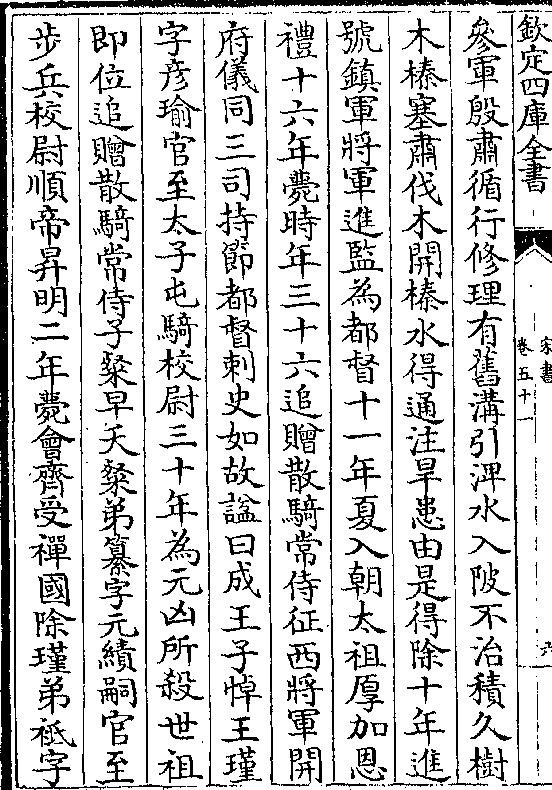 欽定四庫全書
宋書
卷五十一
六
參軍殷肅循行修理有舊溝引淠水入陂不治積久樹
木榛塞肅伐木開榛水得通注旱患由是得除十年進
號鎮軍將軍進監為都督十一年夏入朝太祖厚加恩
禮十六年薨時年三十六追贈散騎常侍征西將軍開
府儀同三司持節都督刺史如故諡曰成王子悼王瑾
字彦瑜官至太子屯騎校尉三十年為元凶所殺世祖
即位追贈散騎常侍子粲早夭粲弟纂字元績嗣官至
步兵校尉順帝昇明二年薨會齊受禪國除瑾弟祗字